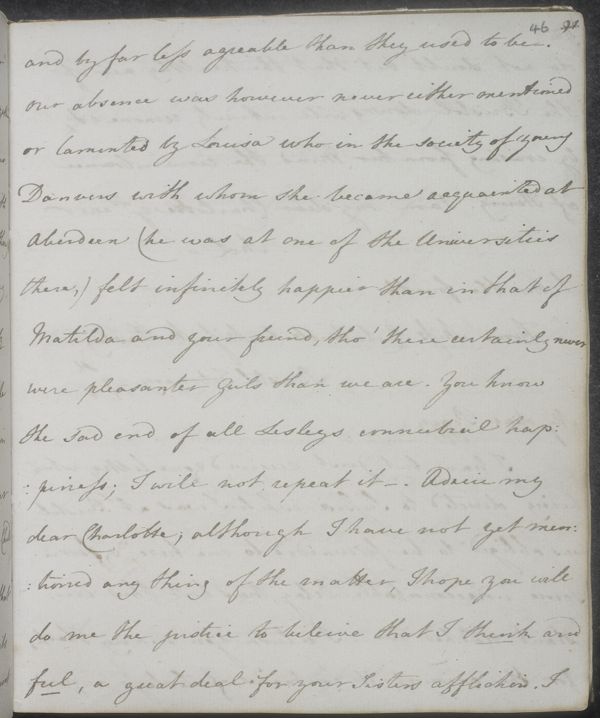 46
and by far less agreable than they used to be.
our absence was however never either mentioned
or lamented by Louisa who in the society of young
Danvers with whom she became acquainted at
Aberdeen (he was at one of the Universities
there,) felt infinitely happier than in that of
Matilda and your freind, tho' there certainly never
were pleasanter Girls than we are. You know
the sad end of all Lesleys connubial hap:
:piness; I will not repeat it—. Adeiu my
dear Charlotte; although I have not yet men:
:tioned any thing of the matter, I hope you will
do me the justice to beleive that I think and
feel, a great deal for your Sisters affliction. I